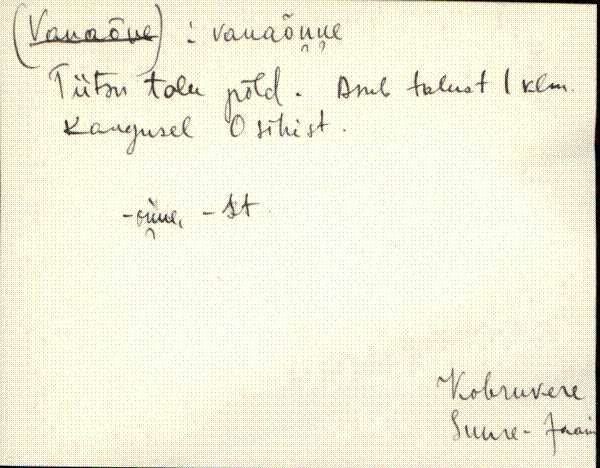 (Vanaõue) : vanaõnne
Tiitsu talu põld. Asub talust 1 klm.
Kaugusel O sihist.
-õnne, -st
Kobruvere
Suure-Jaani